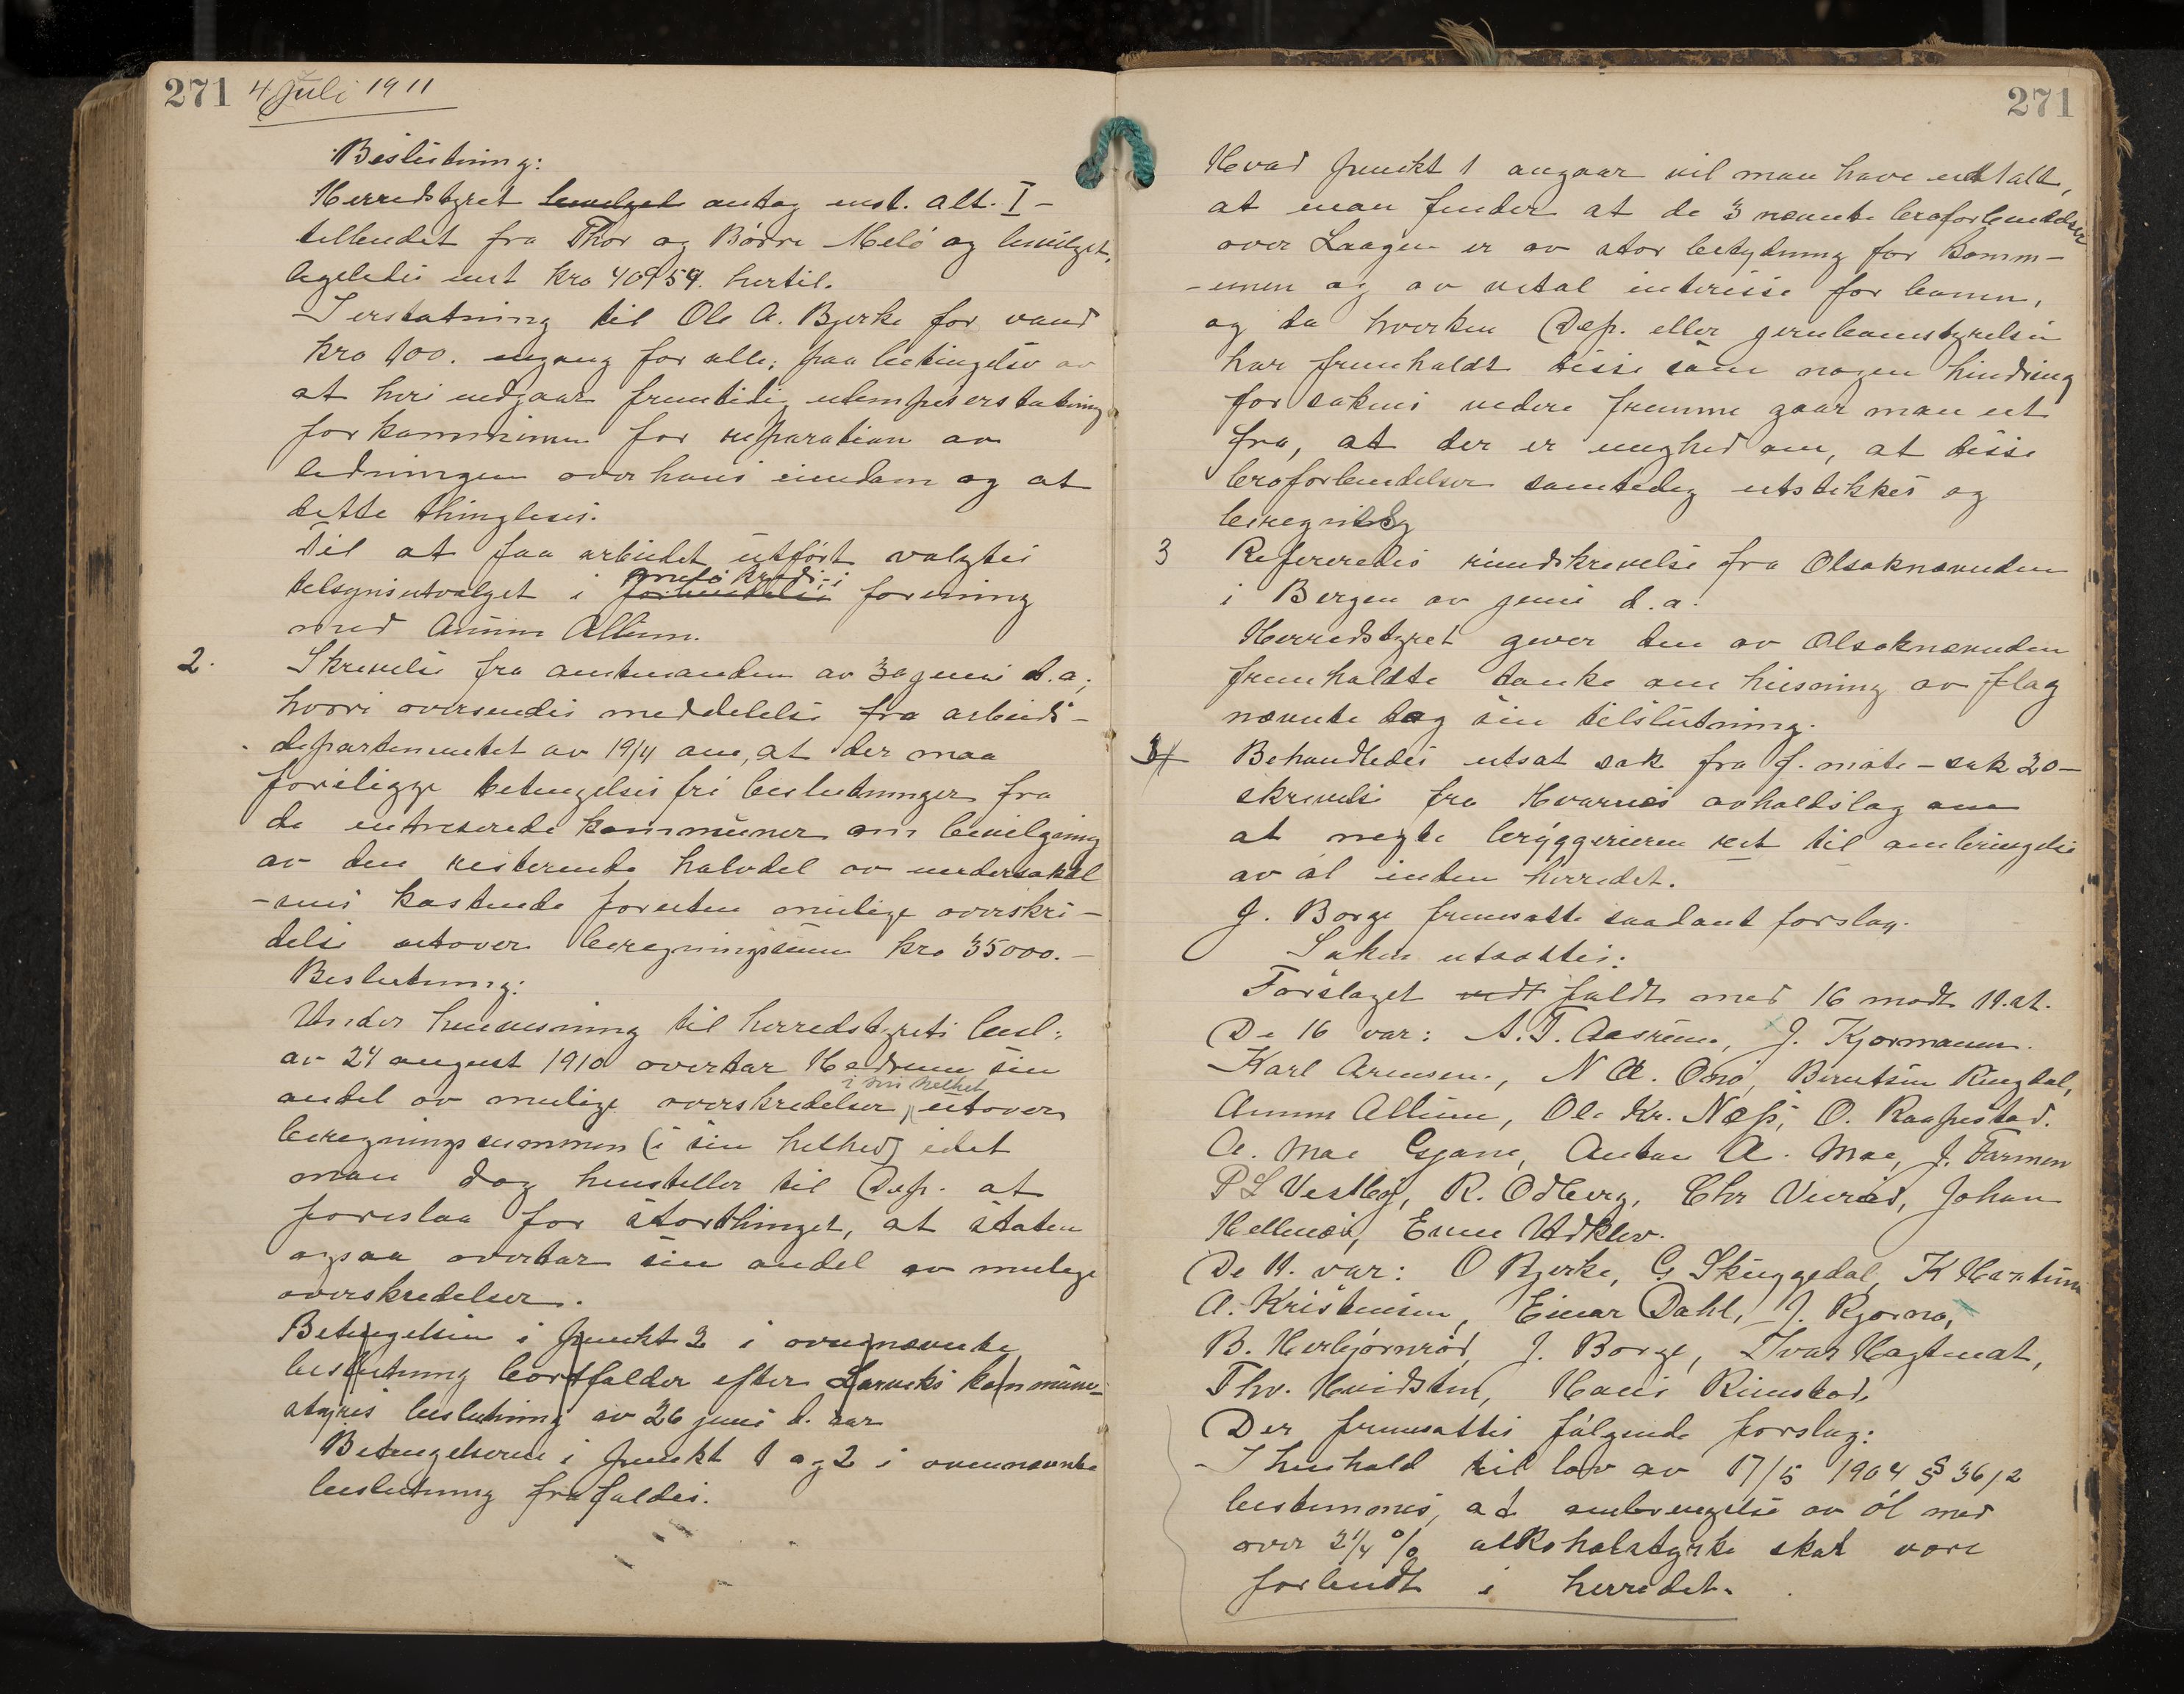 271 4 Juli 1911
Beslutning:
Herredstyret bevilget antog enst. alt. I -
tilbudet fra Thor og Børre Melø og bevilget,
ligeledes enst kro 4095 hertil.
I erstatning til Ole A. Bjerke for vand
kro 100. engang for alle; paa betingelse av
at heri indgaar fremtidig ulempeserstatning
for kommunen for reparation av
ledningen over hans eiendom og at
dette thinglæses.
Til at faa arbeidet utført valgtes
tilsynsutvalget i forening
med Anun Allum.
2. Skrivelse fra amtmanden av 30 juni d.a.,
hvori oversendes meddelelse fra arbeids-
departementet av 19/4 om, at der maa
foreligge betingelsesfri beslutninger fra
de intereserede kommuner om bevilgning
av den resterende halvdel av undersøkel
-sens kostende foruten mulige overskri-
delse utover beregningssum kro 35000.-
Beslutning:
Under henvisning til herredstyrets besl.
av 24 august 1910 overtar Hedrum sin
i sin helhet
andel av mulige overskridelser, utover
beregningssummen (i sin helhed) idet
man dog henstiller til Dep. at
foreslaa for storthinget, at staten
ogsaa overtar sin andel av mulige
overskridelser.
Betingelsen i punkt 2 i ovennævnte
beslutning bortfalder efter Larviks kommune-
styres beslutning av 26 juni d. aar
Betingelserne i punkt 1 og 2 i ovennævnte
beslutning frafaldes.
271
Hvad punkt 1 angaar vil man have uttalt,
at man finder at de 3 nævnte broforbindelser
over Laagen er av stor betydning for Komm-
-unen og av vital interesse for banen,
og da hverken Dep. eller jernbanestyrelsen
har fremholdt disse som nogen hindring
for sakens videre fremme gaar man ut
fra, at der er enighed om, at disse
broforbindelser samtidig utstikkes og
3 Refereredes rundskrivelse fra Olsoknævnden
i Bergen av juni d.a.
Herredstyret giver den av Olsoknævnden
fremholdte tanke om heisning av flag
nævnte dag sin tilslutning.
4 Behandledes utsat sak fra f. møte - sak 20 -
skrivelse fra Kvarnes avholdslag om
at negte bryggerierne ret til ombringelse
av øl inden herredet.
J. Borge fremsatte saadant forslag.
Saken utsættes:
Forslaget vedt faldt med 16 modt 11. st.
De 16 var: A.T. Aasrum, J. Kjørmann.
Karl Arensen, N A. Ono, Berntsen Ringdal,
Anun Allum, Ole Kr. Næss, O. Raapestad.
A. Moe Gjone, Anton A. Moe, J. Farmen
P L Vestby, R. Odberg, Chr Vierød, Johan
Hellenes, Even Udklev.
De 11. var: O Bjerke, G Skuggedal, K Haxtum
A. Kristensen, Einar Dahl, J. Bjorno,
B. Herbjørnrød, J. Borge, Ivar Hagtuat,
Thv. Hvidsten, Hans Rimstad.
Der fremsattes følgende forslag:
I henhold til lov av 17/5 1904 § 36,2
bestemmes, at ombringelse av øl med
over 2 1/4 % alkoholstyrke skal være
forbudt i herredet.